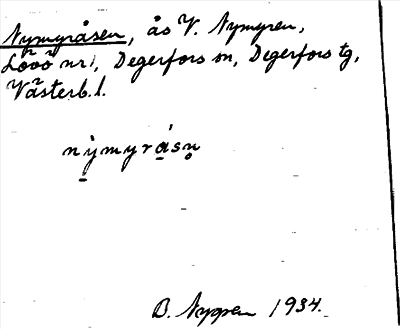 Nymyråsen, ås V. Nymyren,
Lövö nr 1, Degerfors sn, Degerfors tg,
Västerb. l.
nymyråsn
B. Nygren 1934.